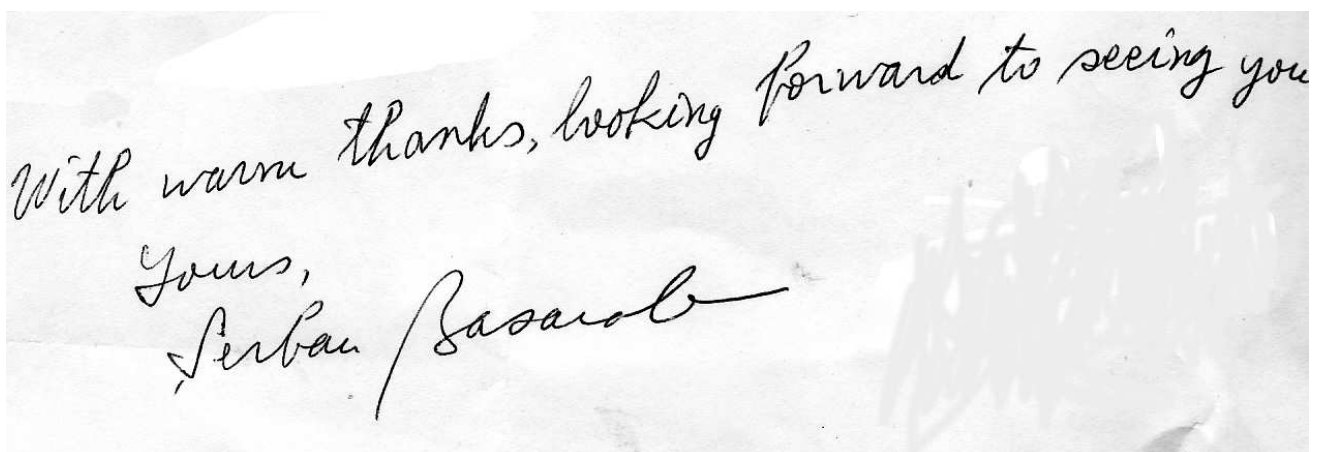 With warm thanks, looking forward to seeing you
Yours,
Șerban Basarab